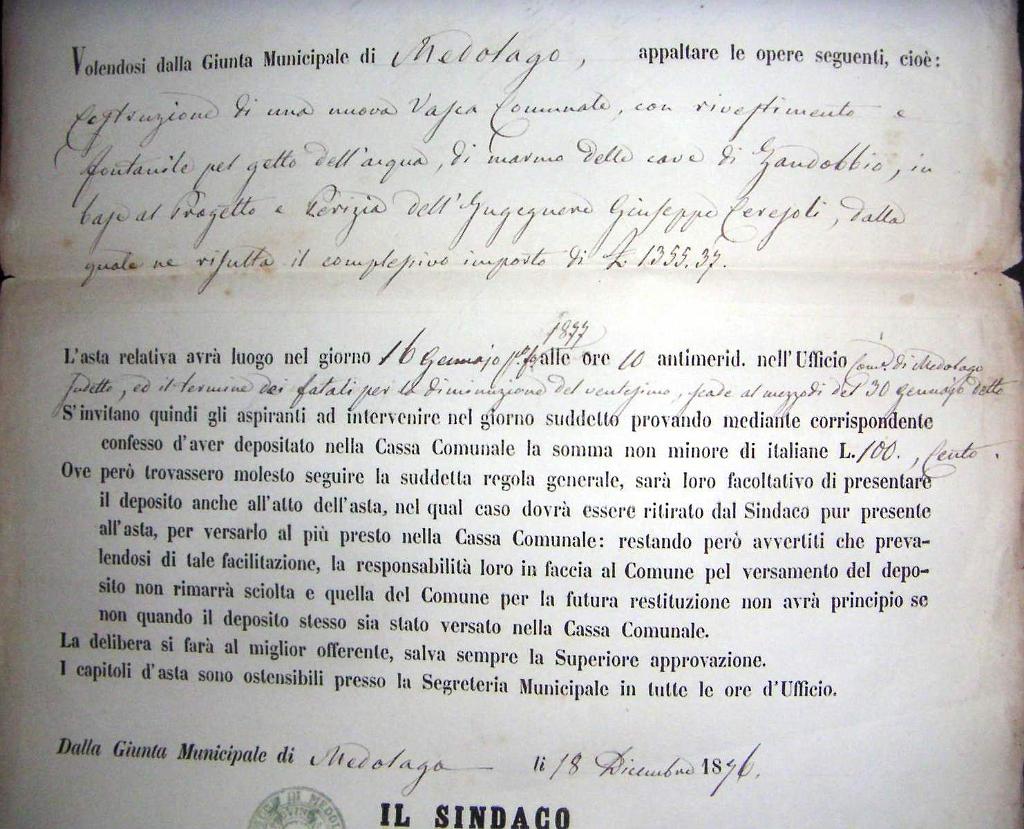 Volendosi dalla Giunta Municipale di Medolago, appaltare le opere seguenti, cioè:
Costruzione di una nuova Vasca Comunale, con rivestimento e
fontanile pel getto dell'acqua, di marmo delle cave di Gandobbio, in
base al Progetto e Perizia dell'Ingegnere Giuseppe Cerejoli, dalla
quale ne risulta il complessivo importo di £ 1355.37.
1877
L'asta relativa avrà luogo nel giorno 16 Gennajo alle ore 10 antimerid. nell'Ufficio Com.e di Medolago
sudetto, ed il termine dei fatali per la diminuzione del ventesimo, scade al mezzodì del 30 Gennajo detto
S'invitano quindi gli aspiranti ad intervenire nel giorno suddetto provando mediante corrispondente
confesso d'aver depositato nella Cassa Comunale la somma non minore di italiane L. 100., Cento.
Ove però trovassero molesto seguire la suddetta regola generale, sarà loro facoltativo di presentare
il deposito anche all'atto dell'asta, nel qual caso dovrà essere ritirato dal Sindaco pur presente
all'asta, per versarlo al più presto nella Cassa Comunale: restando però avvertiti che preva-
lendosi di tale facilitazione, la responsabilità loro in faccia al Comune pel versamento del depo-
sito non rimarrà sciolta e quella del Comune per la futura restituzione non avrà principio se
non quando il deposito stesso sia stato versato nella Cassa Comunale.
La delibera si farà al miglior offerente, salva sempre la Superiore approvazione.
I capitoli d'asta sono ostensibili presso la Segreteria Municipale in tutte le ore d'Ufficio.
Dalla Giunta Municipale di Medolago li 18 Dicembre 1876.
IL SINDACO